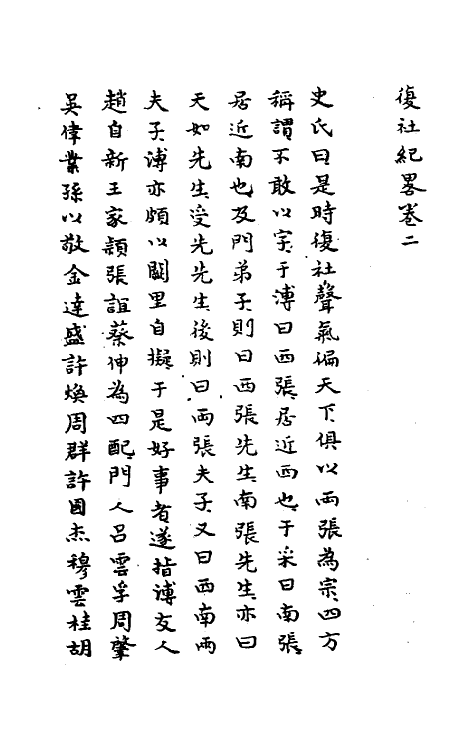 復社紀畧卷二
史氏曰是時復社聲氣徧天下俱以兩張為宗四方
稱謂不敢以字于溥曰西張居近西也于采曰南張
居近南也及門弟子則曰西張先生南張先生亦曰
天如先生受先先生後則曰兩張夫子又曰西南兩
夫子溥亦頗以闕里自擬于是好事者遂指溥友人
趙自新王家穎張誼蔡伸為四配門人呂雲孚周肇
吳偉業孫以敬金達盛許煥周群許国杰穆雲桂胡